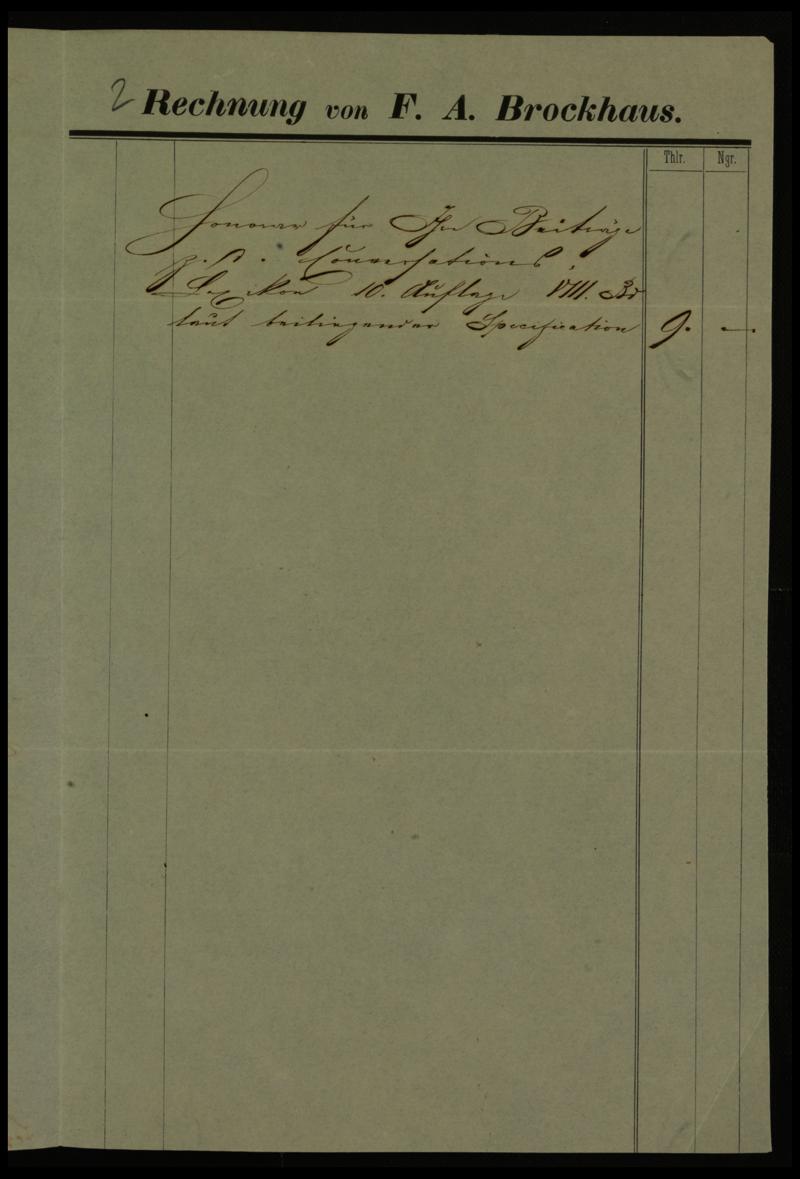 2 Rechnung von F. A. Brockhaus.
Thlr. Ngr.
Honorar für Ihre Beiträge
z. Conversations
Lexikon 10. Auflage VIII. Bd
laut beiliegender Specification 9. —.